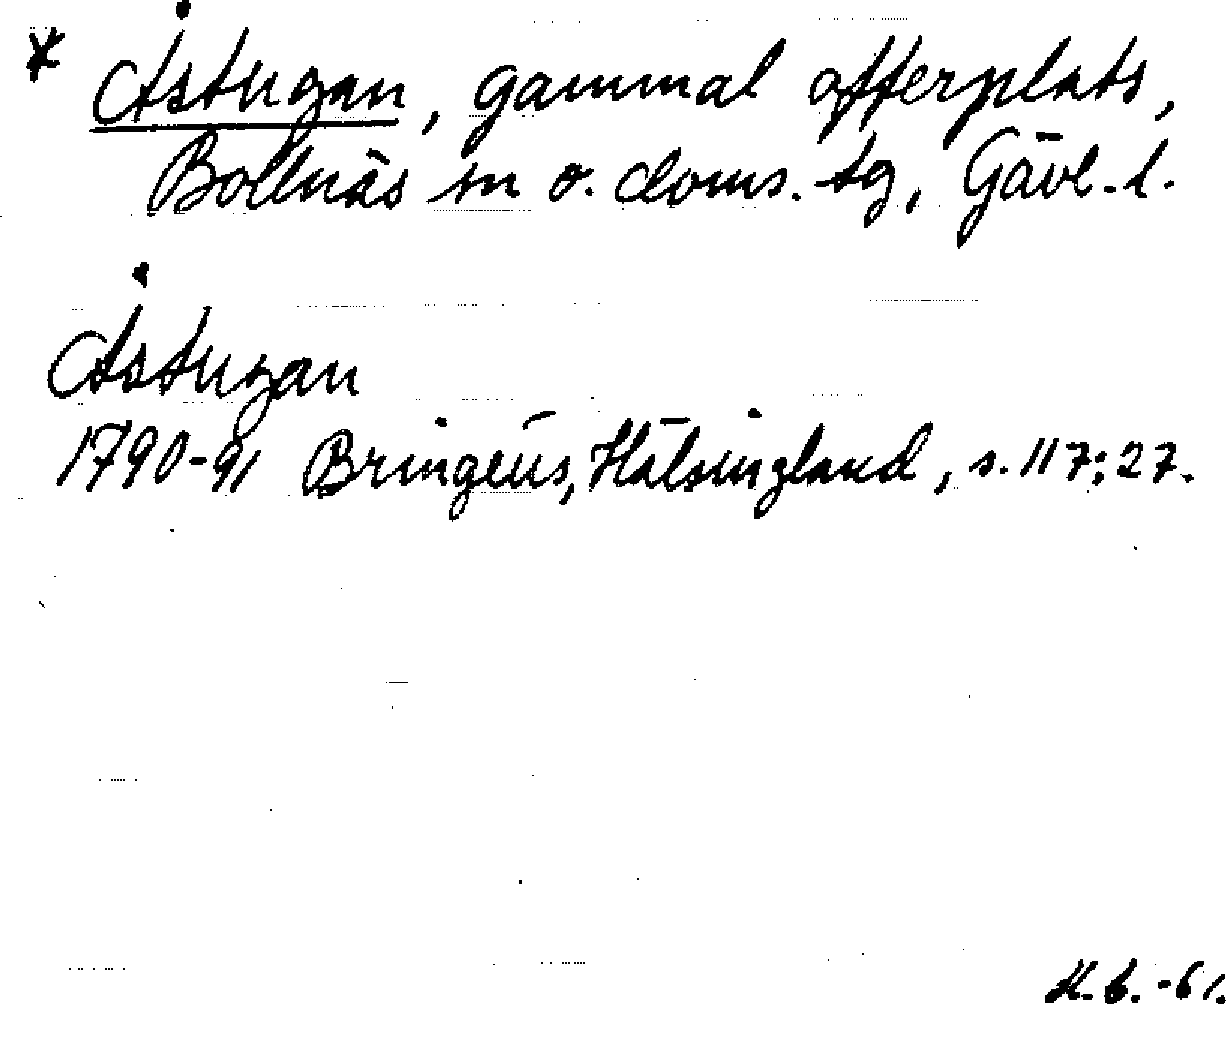 * Åstugan, gammal offerplats,
Bollnäs sn o. doms. tg, Gävl. l.
Åstugan
1790-91 Bringéus, Hälsingland, s. 117:27.
-61.